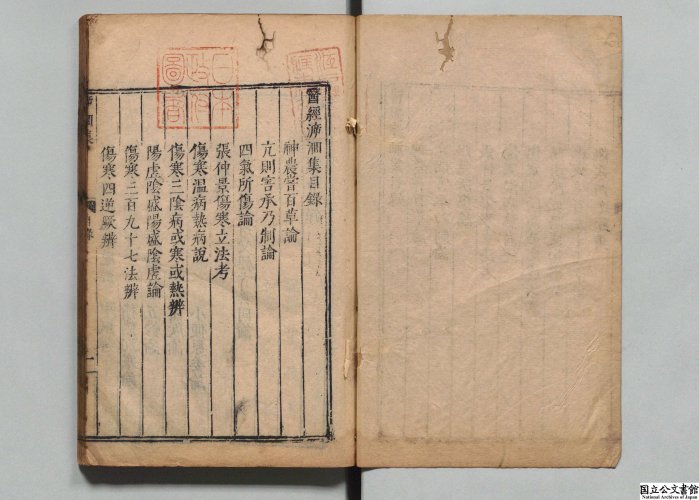 醫經溯洄集目録
神農嘗百草論
亢則害承乃制論
四氣所傷論
張仲景傷寒立法考
傷寒温病熱病説
傷寒三陰病或寒或熱辨
陽虚陰盛陽盛陰虚論
傷寒三百九十七法辨
傷寒四逆厥辨
日本
政府
圖書
国立公文書館
National Archives of Japan